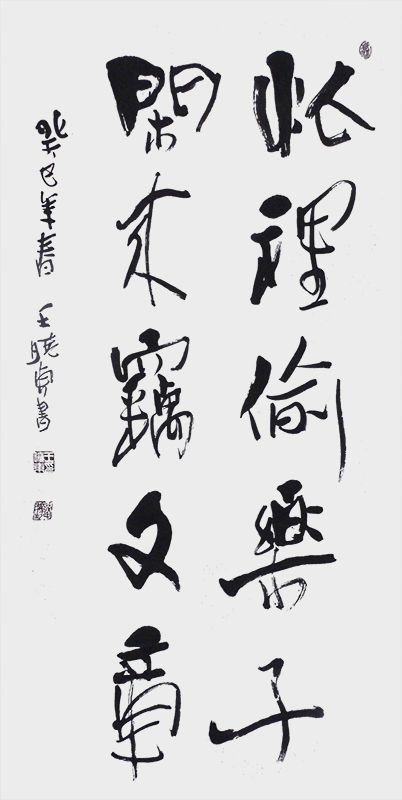 忙裡偷樂子
閑來竊文章
癸巳年春 王曉書